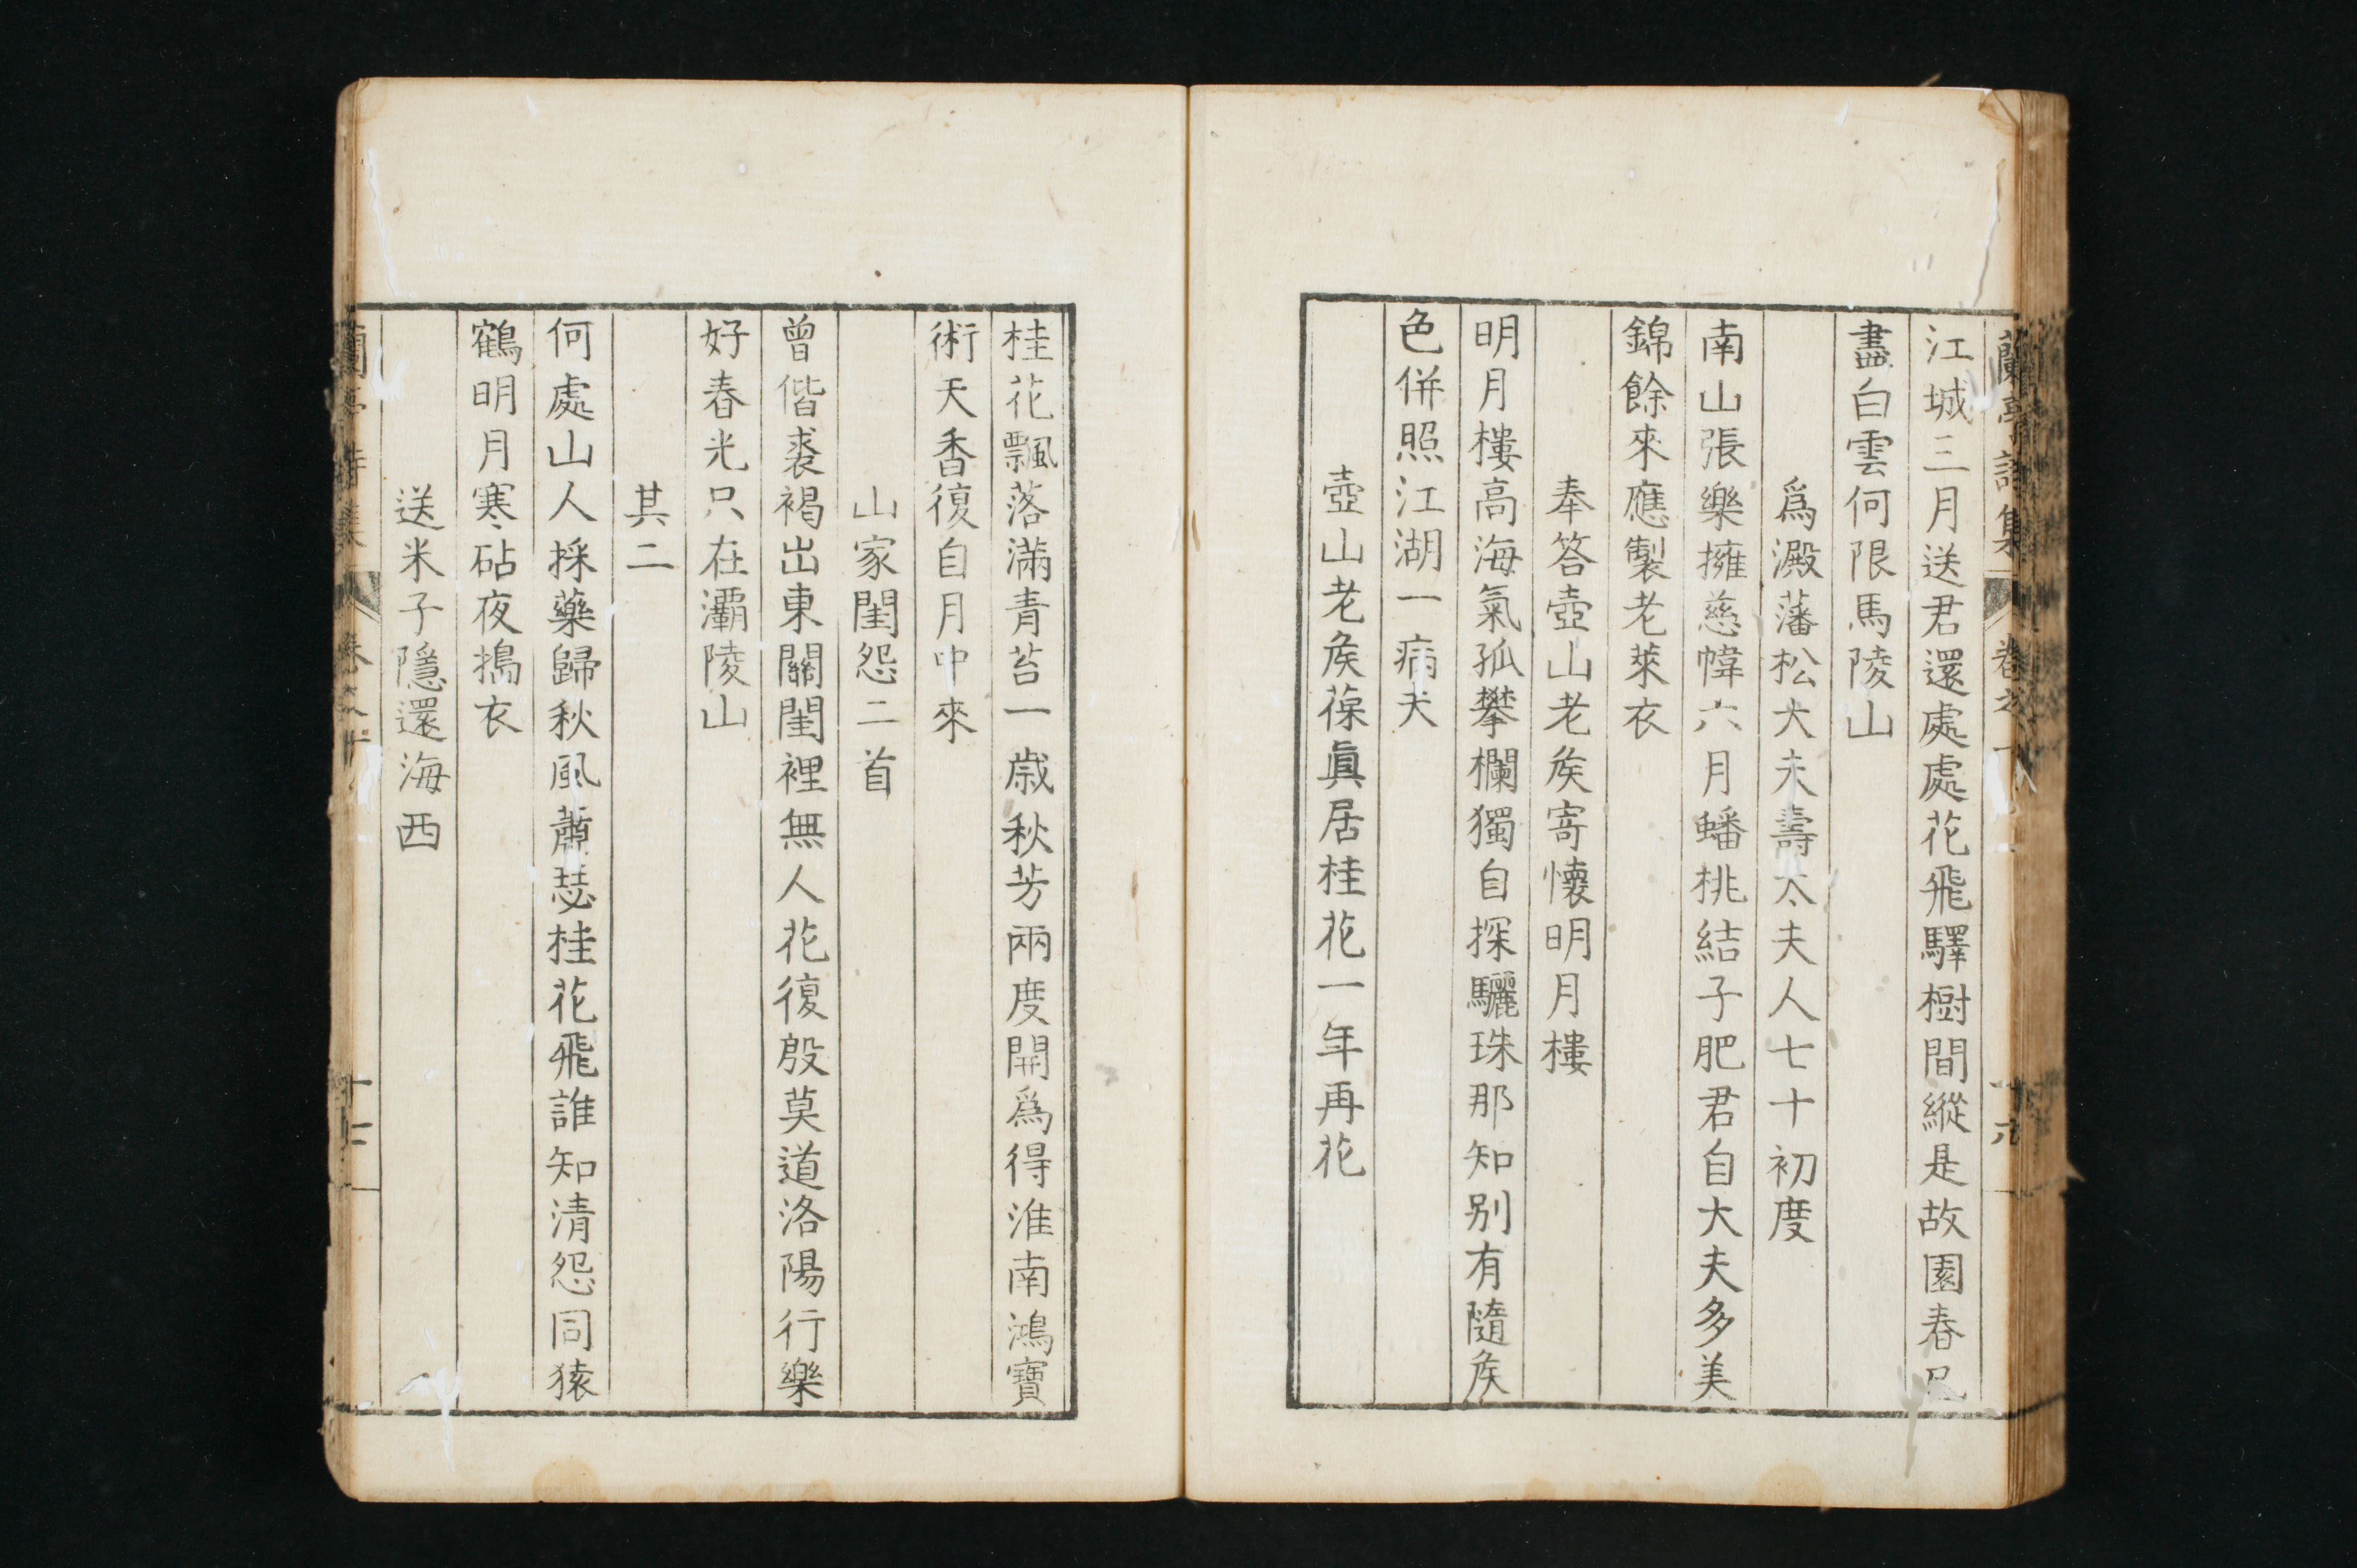 蘭亭詩集 卷之
江城三月送君還處處花飛驛樹間縱是故園春已
盡白雲何限馬陵山
爲澱藩松大夫壽太夫人七十初度
南山張樂擁慈幃六月蟠桃結子肥君自大夫多美
錦餘來應製老萊衣
奉答壺山老矦寄懷明月樓
明月樓高海氣孤攀欄獨自探驪珠那知別有隨矦
色併照江湖一病夫
壺山老矦葆眞居桂花一年再花
桂花飄落滿青苔一歳秋芳兩度開爲得淮南鴻寶
術天香復自月中來
山家閨怨二首
曾偕裘褐出東關閨裡無人花復殷莫道洛陽行樂
好春光只在灞陵山
其二
何處山人採藥歸秋風蕭瑟桂花飛誰知清怨同猿
鶴明月寒砧夜搗衣
送米子隱還海西
蘭亭詩集 卷之十 十七